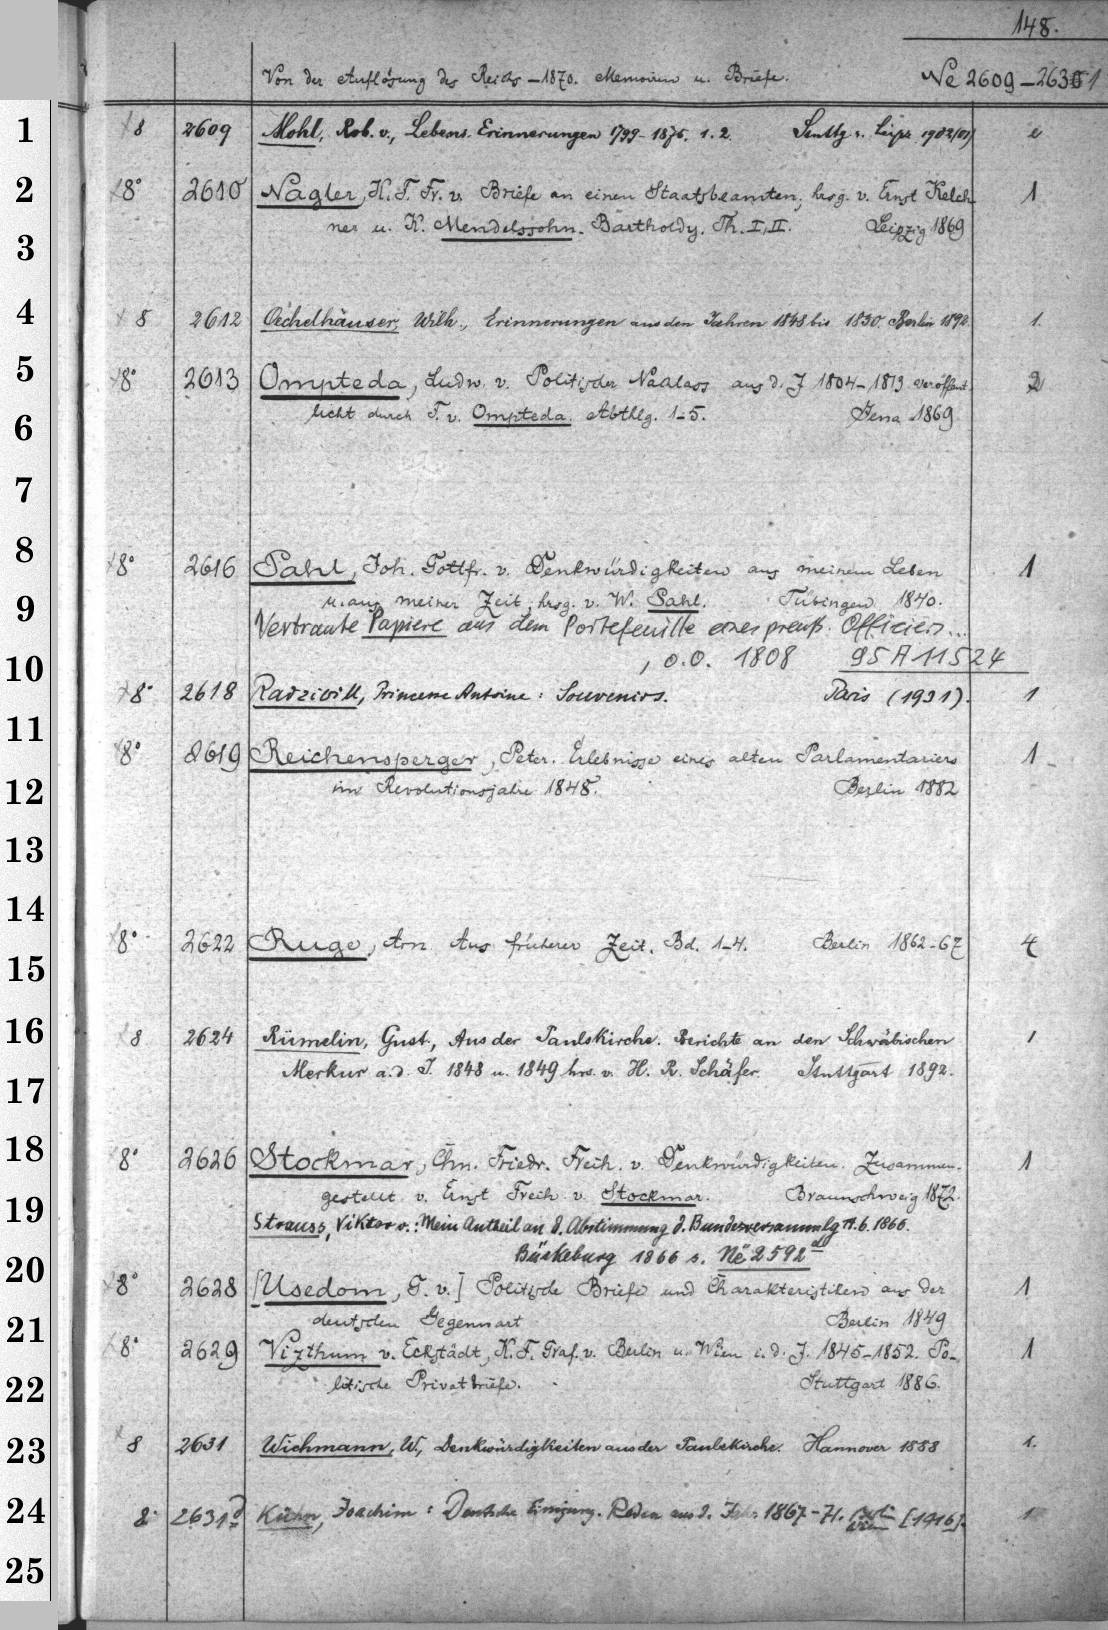 148.
Von der Auflösung des Reichs - 1870. Memoiren u. Briefe. Ne 2609-2631
1 8 2609 Mohl, Rob. v., Lebens-Erinnerungen 1799-1875. 1. 2. Stuttg. u. Leipz. 1902/01
2 8° 2610 Nagler, K. F. Fr. v. Briefe an einen Staatsbeamten, hrsg. v. Ernst Kelch- 1
ner u. K. Mendelssohn-Bartholdy. Th. I, II. Leipzig 1869
3
4 8 2612 Oechelhäuser, Wilh., Erinnerungen aus den Jahren 1848 bis 1850. Berlin 1892. 1.
5 8° 2613 Ompteda, Ludw. v. Politischer Nachlass aus d. J 1804-1813 veröffent- 2
6 licht durch F. v. Ompteda. Abthlg. 1-5. Jena 1869
7
8 8° 2616 Pahl, Joh. Gottfr. v. Denkwürdigkeiten aus meinem Leben 1
9 u. aus meiner Zeit, hrsg. v. W. Pahl. Tübingen 1840.
Vertraute Papiere aus dem Portefeuille eines preuß. Officiers...
10 , o.O. 1808 95 A 11524
8° 2618 Radziwill, Princesse Antoine: Souvenirs. Paris (1931). 1
11
8° 2619 Reichensperger, Peter. Erlebnisse eines alten Parlamentariers 1
12 im Revolutionsjahre 1848. Berlin 1882
13
14
8° 2622 Ruge, Arn. Aus früherer Zeit. Bd. 1-4. Berlin 1862-67 4
15
16 8 2624 Rümelin, Gust., Aus der Paulskirche. Berichte an den Schwäbischen 1
Merkur a. d. J. 1848 u. 1849 hrs. v. H. R. Schäfer. Stuttgart 1892.
17
18 8° 2626 Stockmar, Chn. Friedr. Freih. v. Denkwürdigkeiten. Zusammen- 1
gestellt v. Ernst Freih. v. Stockmar. Braunschweig 1872.
19 Strauss, Viktor v.: Mein Antheil an d. Abstimmung d. Bundesversammlg 14.6.1866.
Bückeburg 1866 s. Ne 2592
20 8° 2628 [Usedom, G. v.] Politische Briefe und Charakteristiken aus der 1
21 deutschen Gegenwart Berlin 1849
8° 2629 Vizthum v. Eckstädt, K. F. Graf. v. Berlin u. Wien i. d. J. 1845-1852. Po- 1
22 litische Privatbriefe. Stuttgart 1886.
23 8 2631 Wichmann, W., Denkwürdigkeiten aus der Paulskirche. Hannover 1888 1.
24 8° 2631d Kühn, Joachim: Deutsche Einigung. Reden aus d. 1867-71. Berlin [1916]. 1
Wien
25